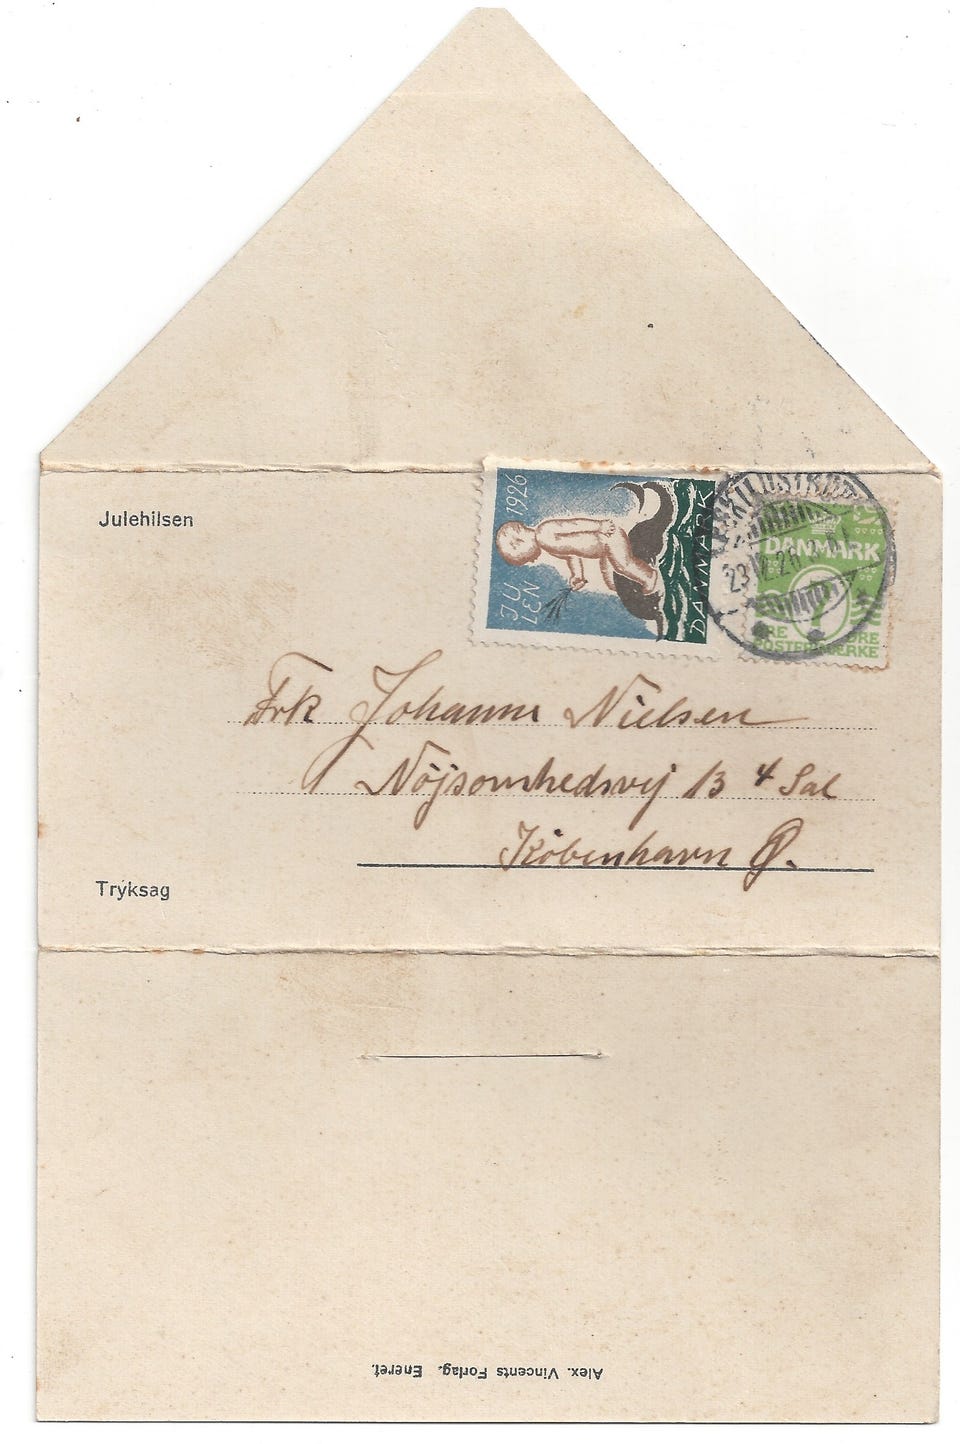 Julehilsen
JULEN 1926
DANMARK
DANMARK
7
ØRE ØRE
POSTFRIMÆRKE
23.12.26
Frk Johanne Nielsen
Nöjsomhedsvej 13 4 Sal
København Ø.
Tryksag
Alex. Vincents Forlag. Eneret.